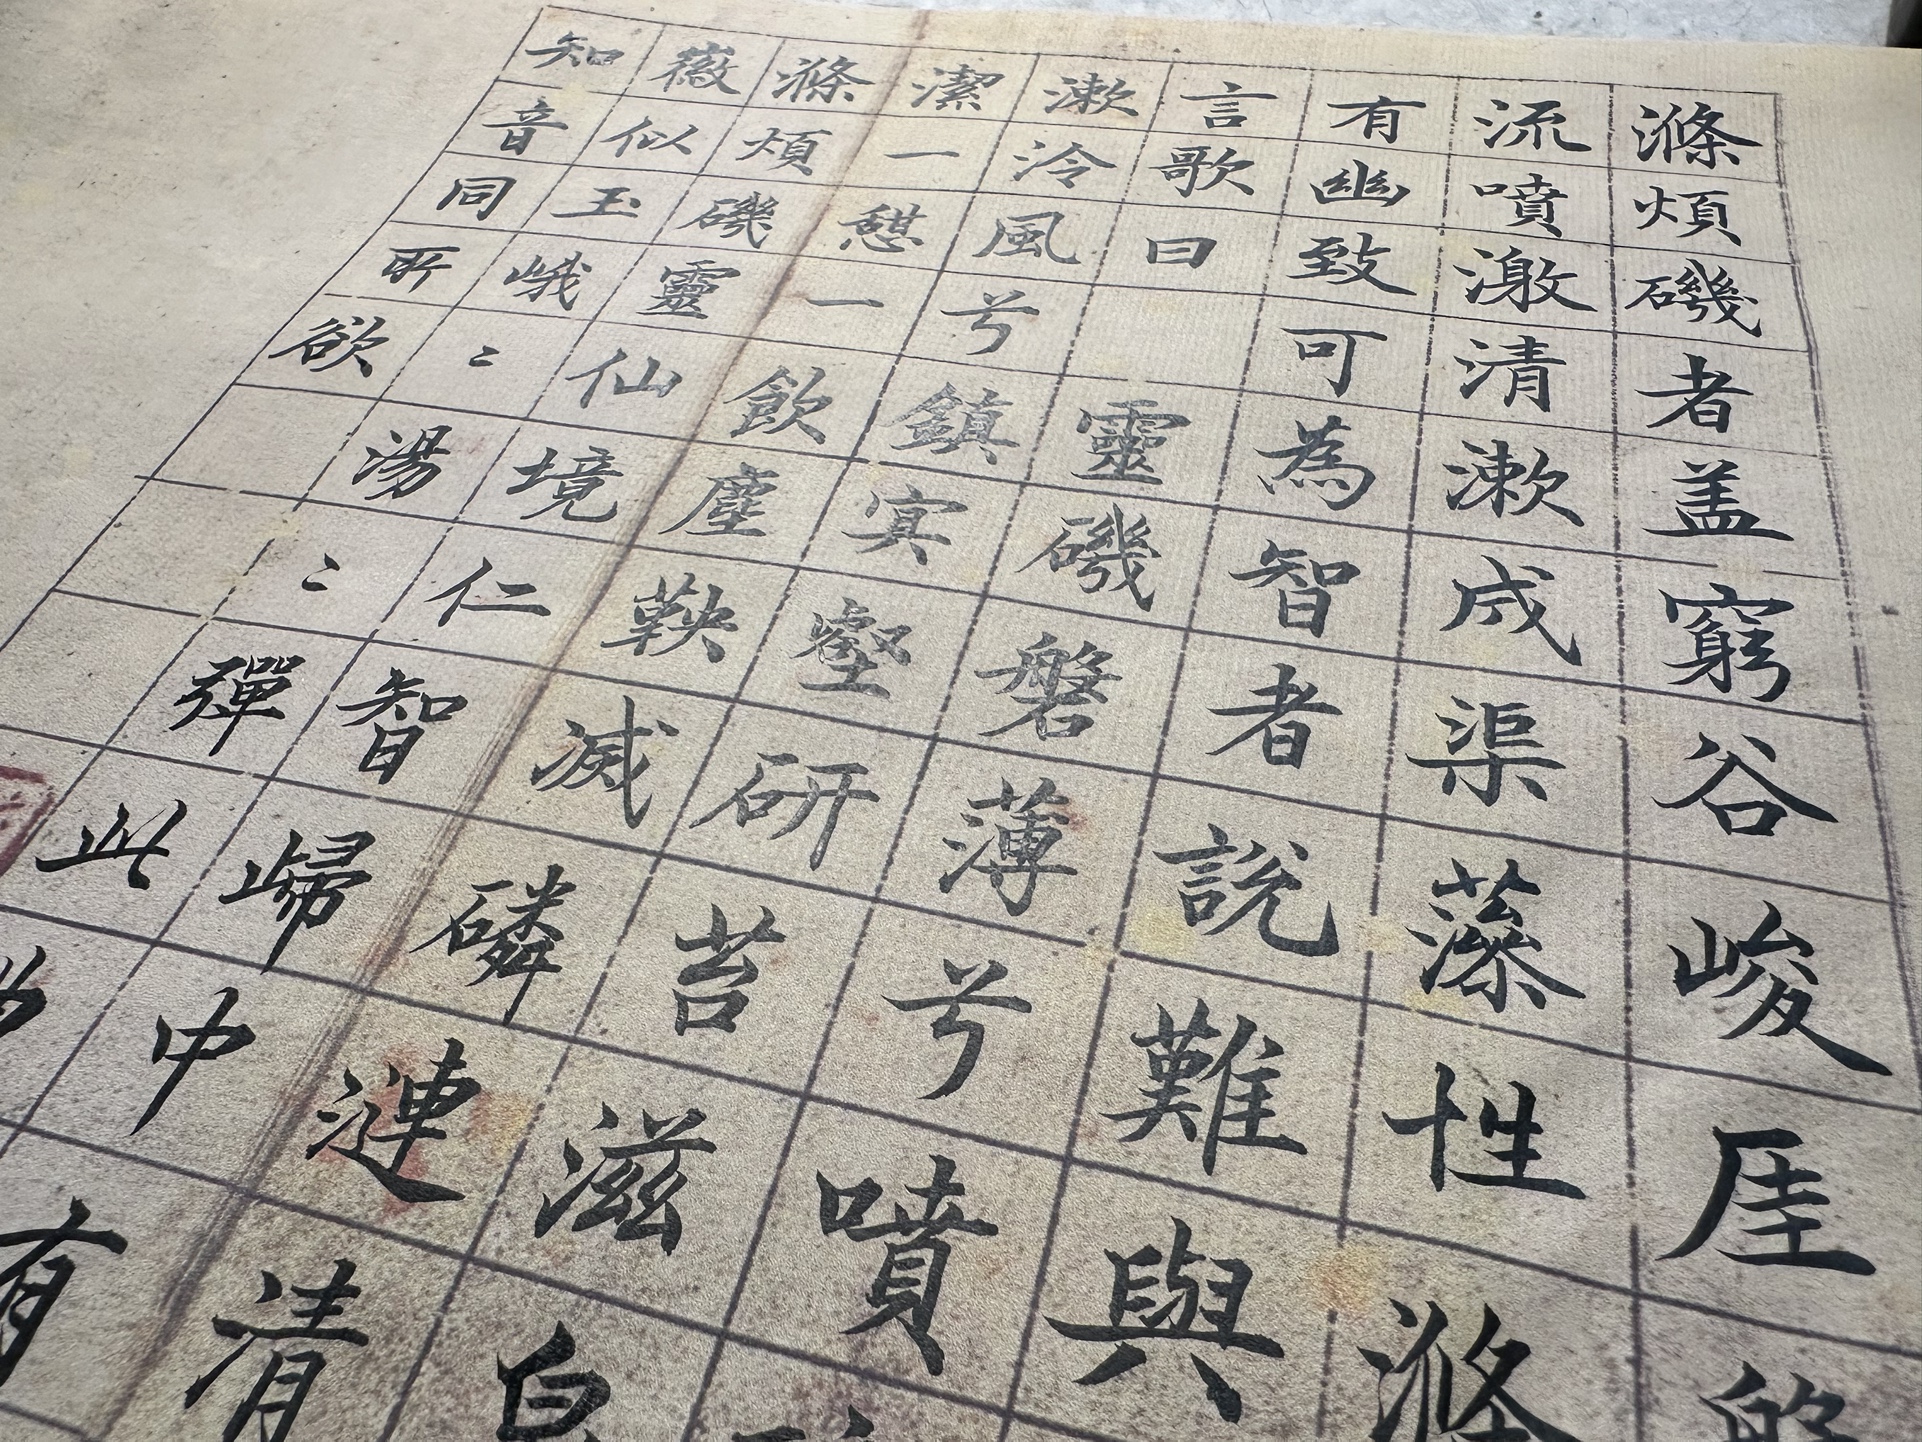 滌煩磯者盖窮谷峻厓
流噴激清漱成渠藻性滌
有幽致可為智者說難與
言歌曰 靈磯磐薄兮噴
漱泠風兮鎮冥壑研苔滋
潔一憩一飲塵鞅滅磷漣清
滌煩磯靈仙境仁智歸中有
薇似玉峨〻湯〻彈此
知音同所欲